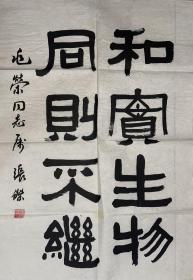 和實生物
同則不繼
兆榮同志屬 張傑